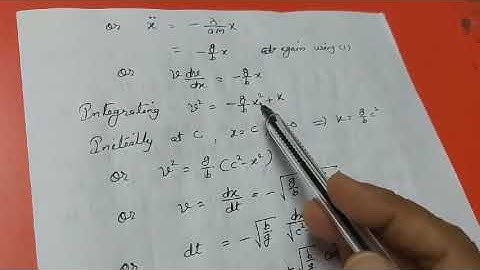 or ẍ = - λ/am x
= - g/b x again using (1)
or v dv/dx = - g/b x
Integrating v² = - g/b x² + K
Initially at C, x = c =0 ⇒ K = g/b c²
or v² = g/b (c² - x²)
or v = dx/dt = - √g/b
dt = - √b/g dx/√c²
or